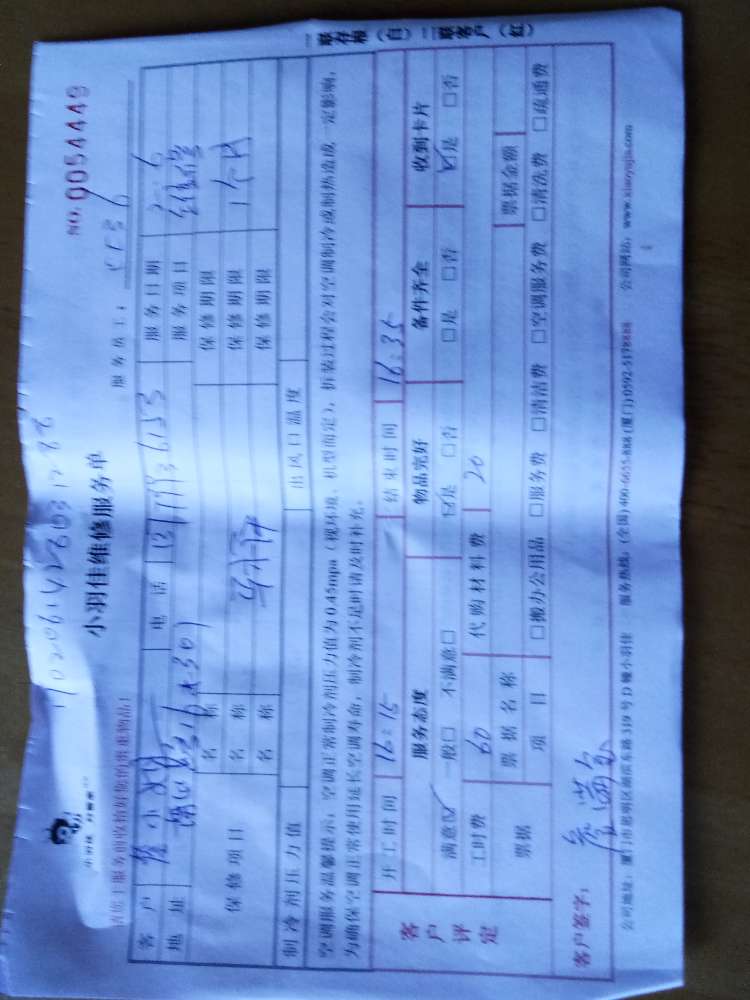 小羽佳维修服务单
NO. 0054449
服务员工:
请您于服务前收拾好您的贵重物品!
客户 电话 服务日期 2-6
地址 服务项目 维修
保修项目 名称 保修期限 1个月
名称 保修期限
名称 保修期限
制冷剂压力值 出风口温度
空调服务温馨提示:空调正常制冷剂压力值为0.45mpa(视环境、机型而定),拆装过程会对空调制冷或制热造成一定影响,
为确保空调正常使用延长空调寿命,制冷剂不足时请及时补充。
客户评定
开工时间 16:15 结束时间 16:35
服务态度 物品完好 备件齐全 收到卡片
满意☑ 一般□ 不满意□ ☑是 □否 □是 □否 ☑是 □否
工时费 60 代购材料费 20
票据 票据名称 票据金额
项目 □搬办公用品 □服务费 □清洁费 □空调服务费 □清洗费 □疏通费
客户签字:
公司地址:厦门市思明区湖滨东路319号D幢小羽佳 服务热线:(全国)400-6655-888 (厦门)0592-5178888 公司网站:www.xiaoyujia.com
一联存根(白)二联客户(红)